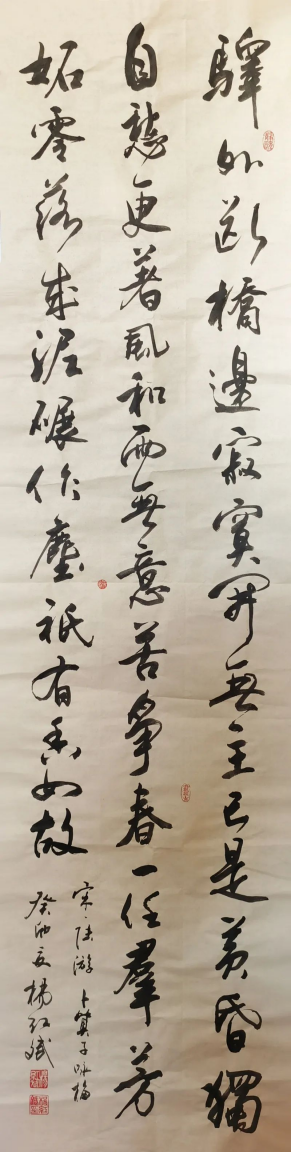 驛外断橋邊寂寞開無主已是黃昏獨
自愁更著風和雨無意苦爭春一任羣芳
妬零落成泥碾作塵祇有香如故
宋·陸游 卜算子詠梅
癸卯夏楊红斌